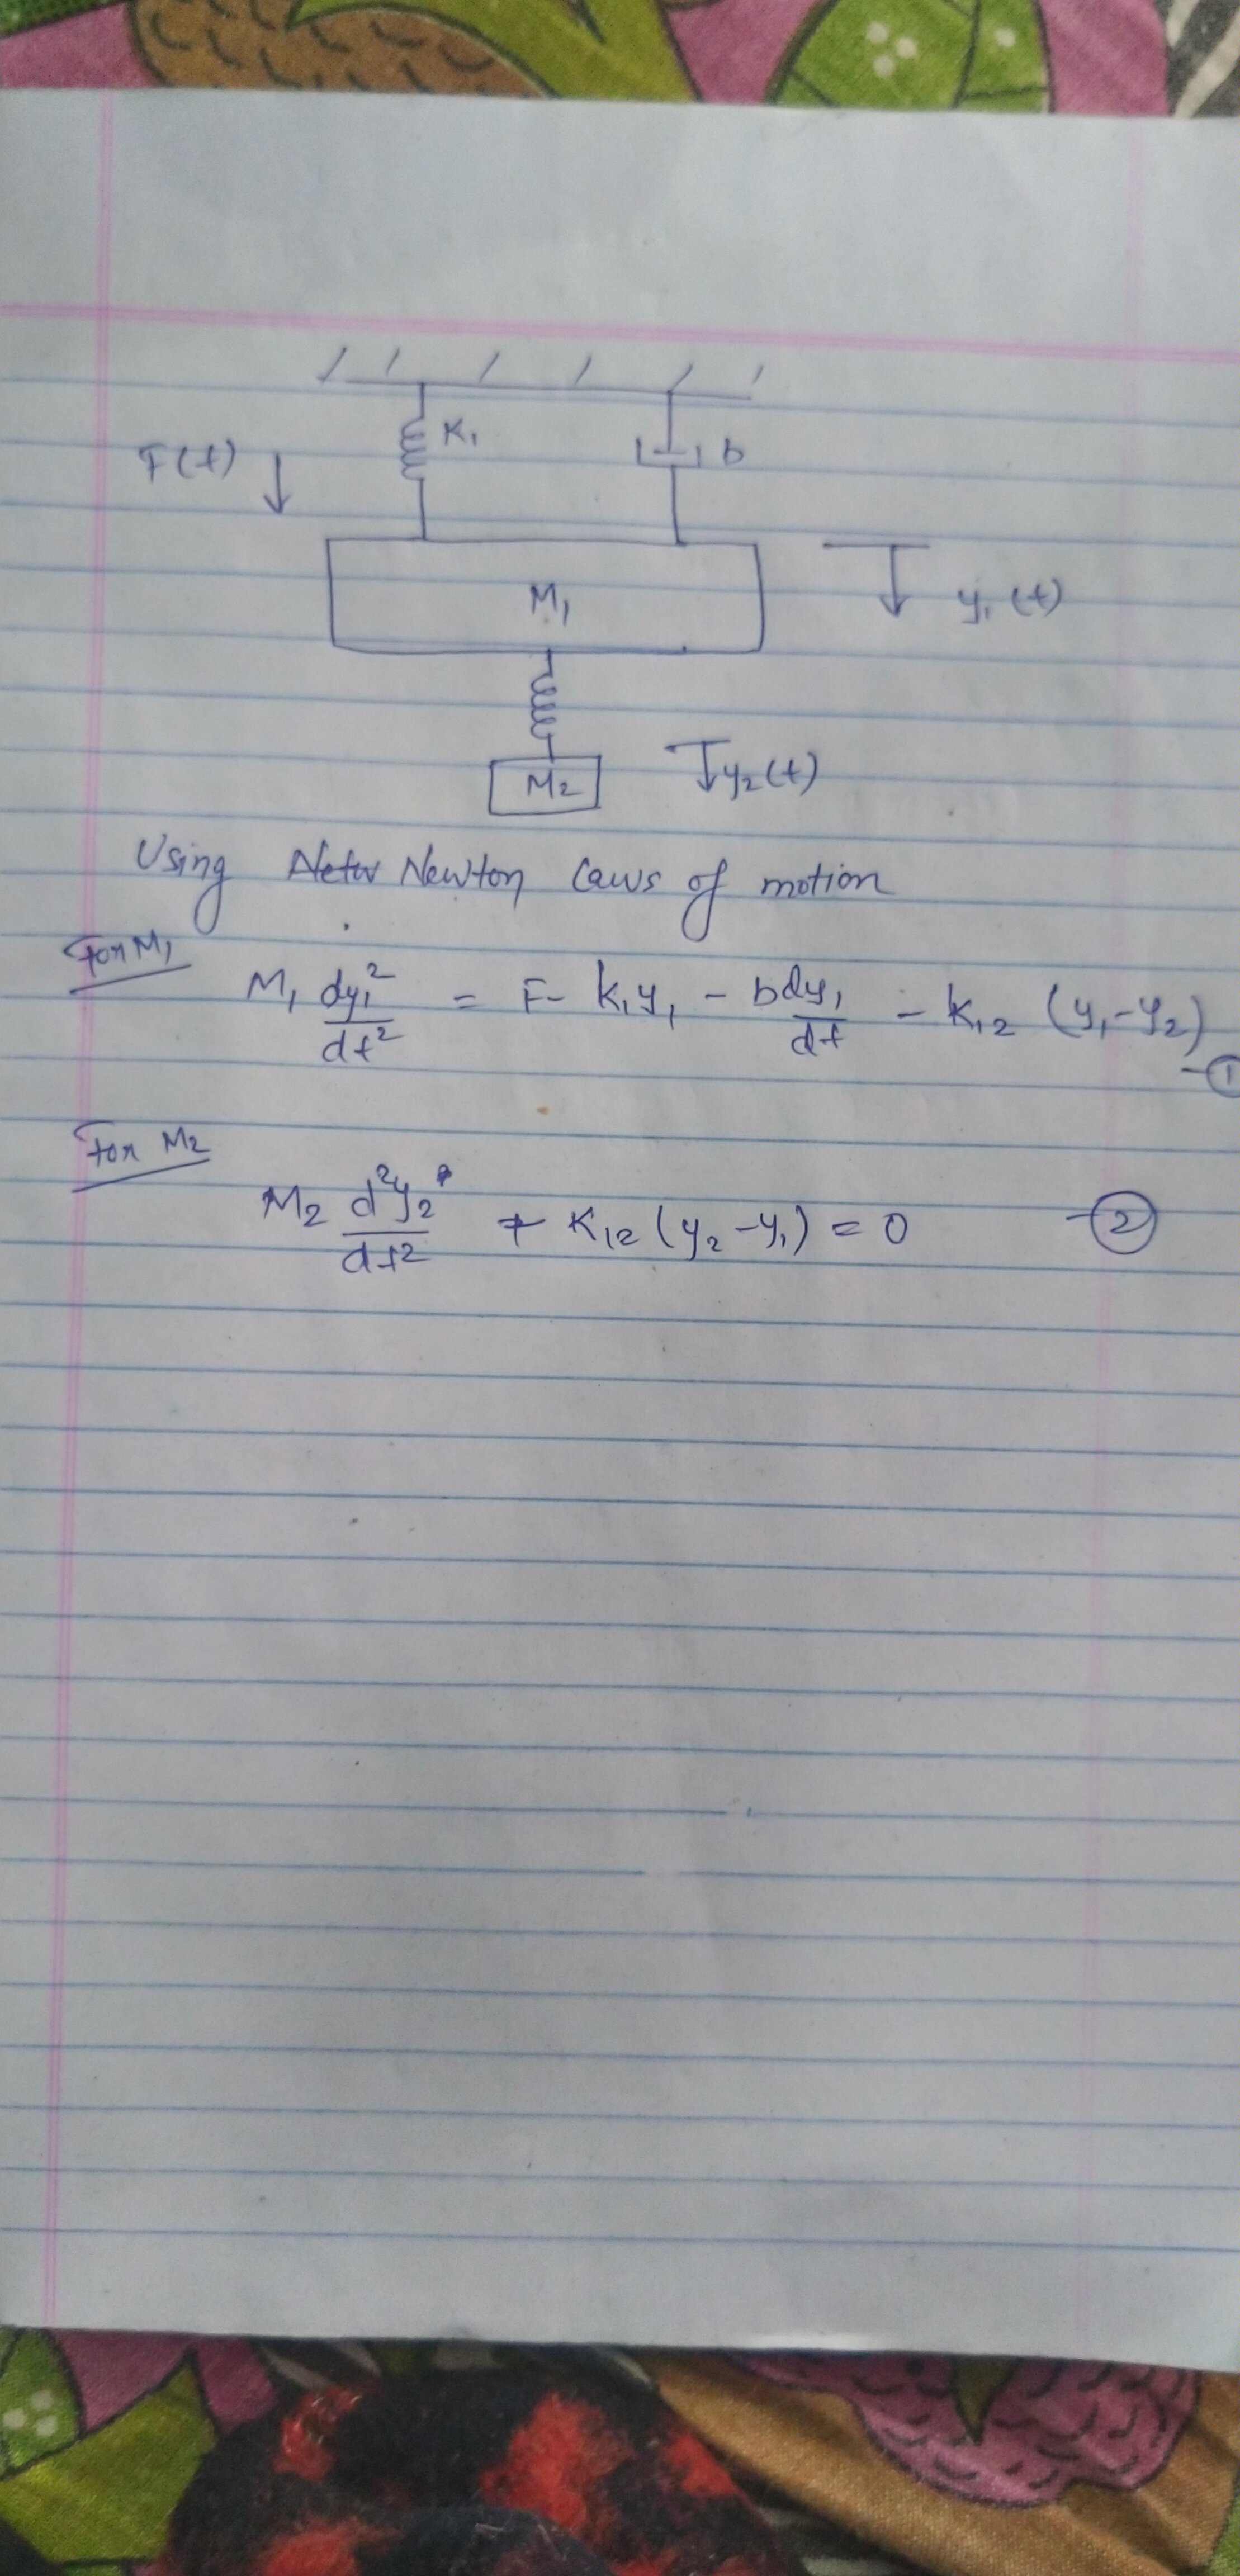 K₁
F(t) b
M₁ y₁(t)
M₂ y₂(t)
Using Newton Laws of motion
For M₁
M₁ dy₁²/dt² = F - k₁y₁ - b dy₁/dt - K₁₂ (y₁-y₂) -①
For M₂
M₂ d²y₂/dt² + K₁₂ (y₂-y₁) = 0 -②